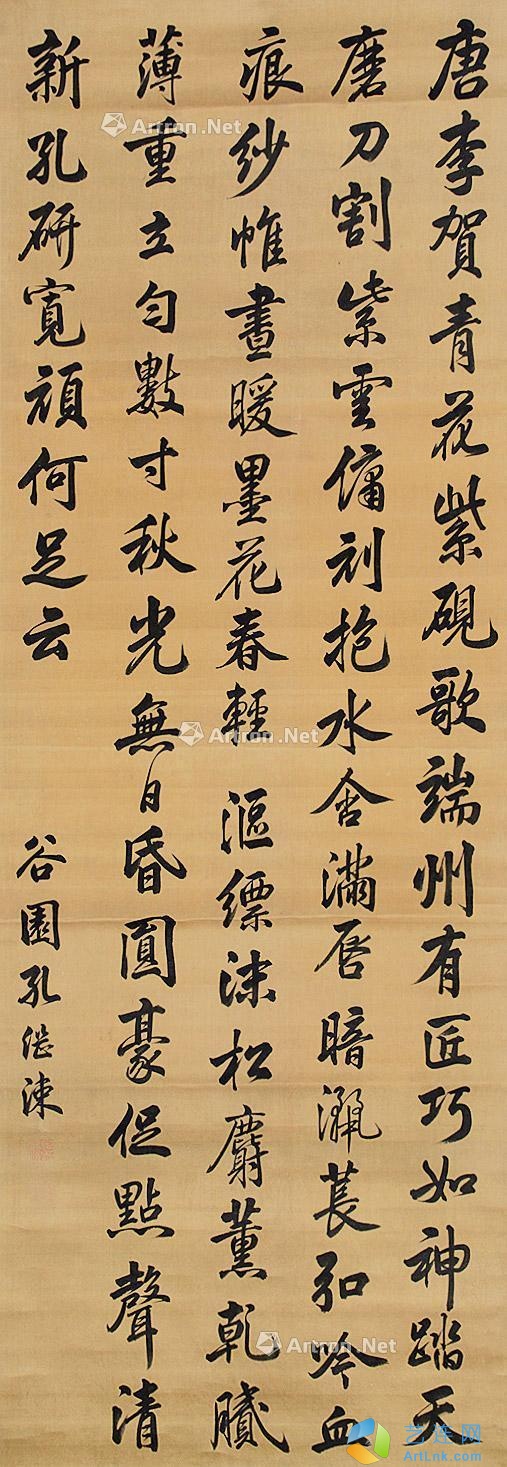 唐李賀青花紫硯歌端州有匠巧如神踏天
磨刀割紫雲傭刓抱水含滿唇暗灑萇弘冷血
痕紗帷晝暖墨花春輕漚縹沫松麝薰乾膩
薄重立勻數寸秋光無日昏圓豪促點聲清
新孔研寬頑何足云
谷園孔繼涑
Artron.Net
Artron.Net
Artron.Net
Artron.Net
艺连网
ArtLink.com